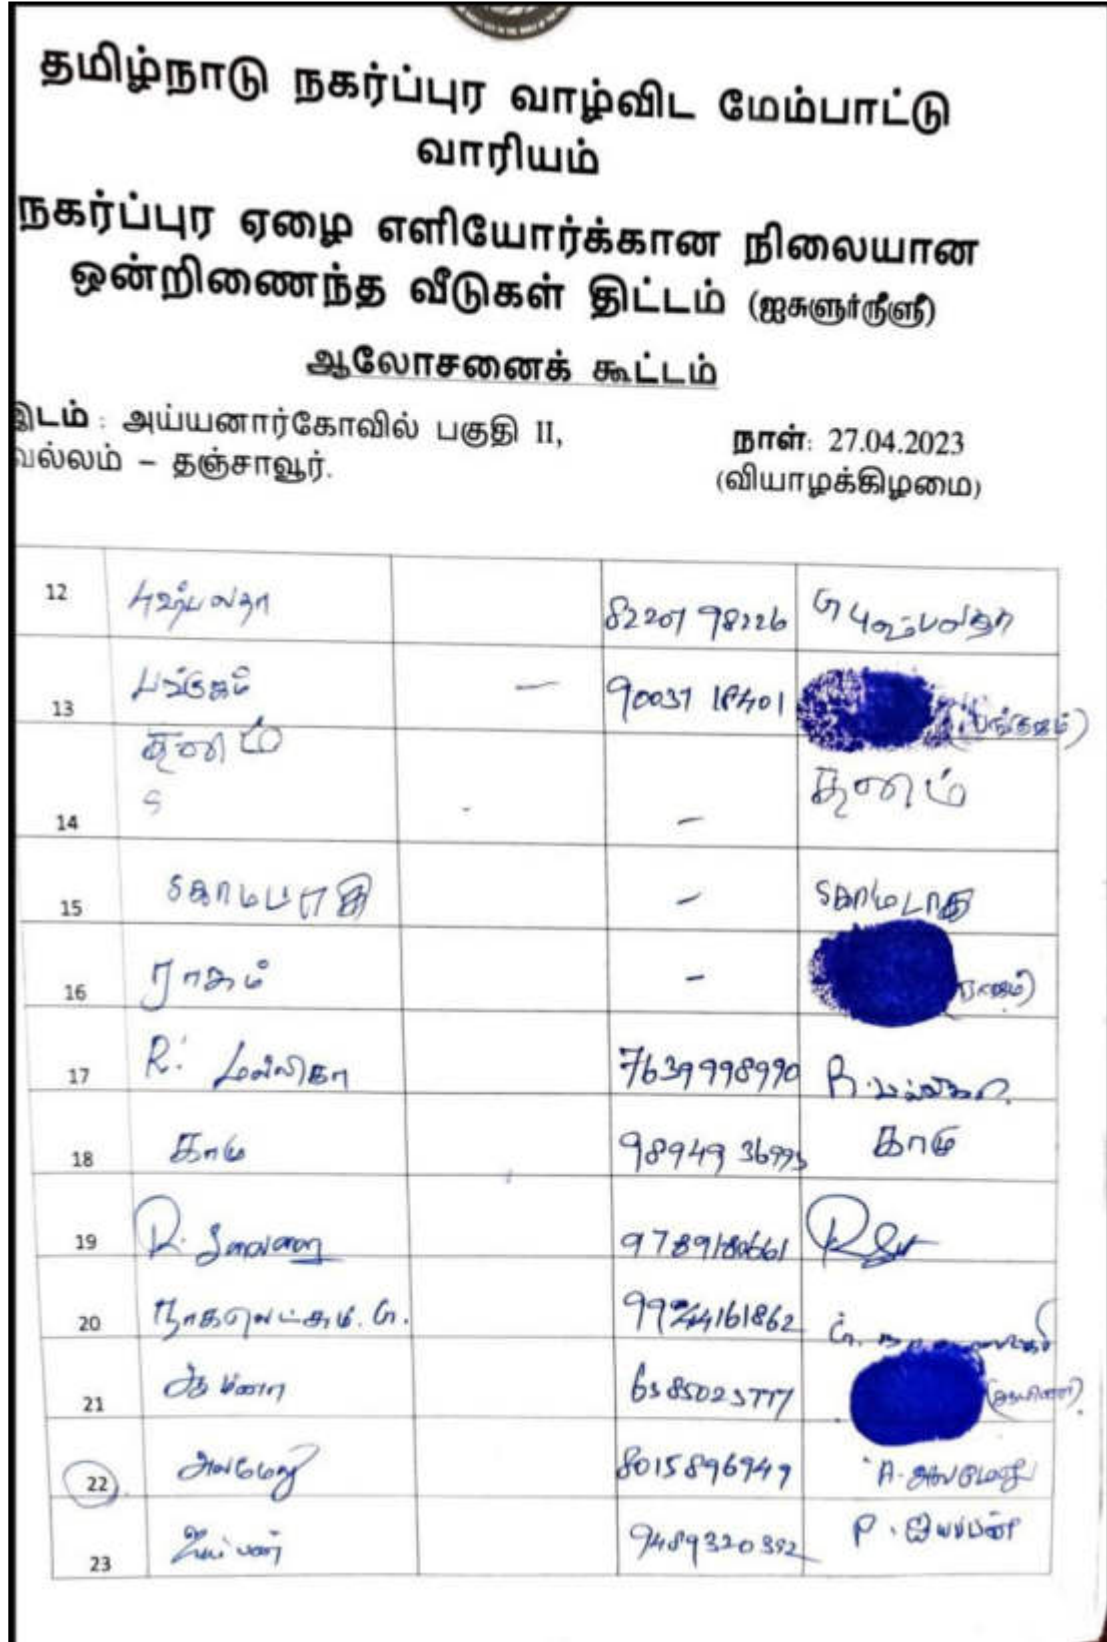 தமிழ்நாடு நகர்ப்புர வாழ்விட மேம்பாட்டு
வாரியம்
நகர்ப்புர ஏழை எளியோர்க்கான நிலையான
ஒன்றிணைந்த வீடுகள் திட்டம் (ஐசுளுர்நீளு)
ஆலோசனைக் கூட்டம்
இடம் : அய்யனார்கோவில் பகுதி II,
வல்லம் – தஞ்சாவூர்.
நாள்: 27.04.2023
(வியாழக்கிழமை)
12 புஷ்பலதா 82207 98226 G புஷ்பலதா
13 பங்கஜம் — 90037 18401 (பங்கஜம்)
14 கனம் - – கனம்
15 –
16 ராஜம் – (ராஜம்)
17 R. மல்லிகா 7639998990 R. மல்லிகா.
18 காமு 98949 காமு
19 R. 9789180661
20 நாகலெட்சுமி. G. 9944161862 G.
21 அமிணா 6385023777 (அமிணா).
22 அலமேலு 8015896949 A. அலமேலு
23 ஐயப்பன் 9489320392 P. ஐயப்பன்